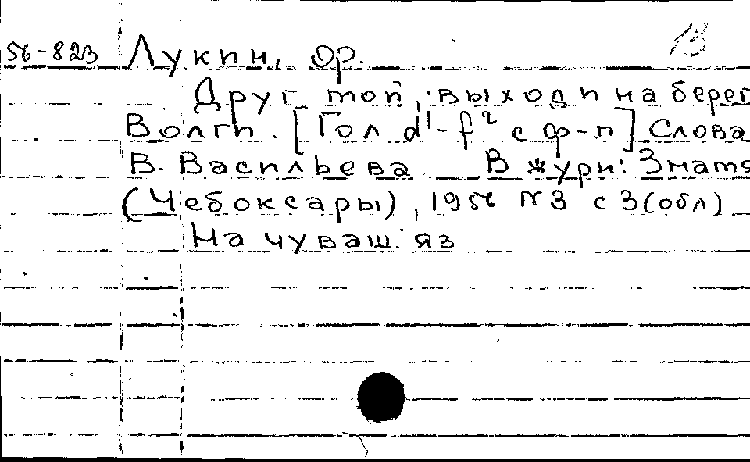 13
56-823 Лукин, Ф.
Друг мой, выходи на берег
Волги. [Гол. d¹-f² с ф-п] Слова
В. Васильева В журн:
(Чебоксары), 1956 №3 с 3(обл)
На чуваш. яз